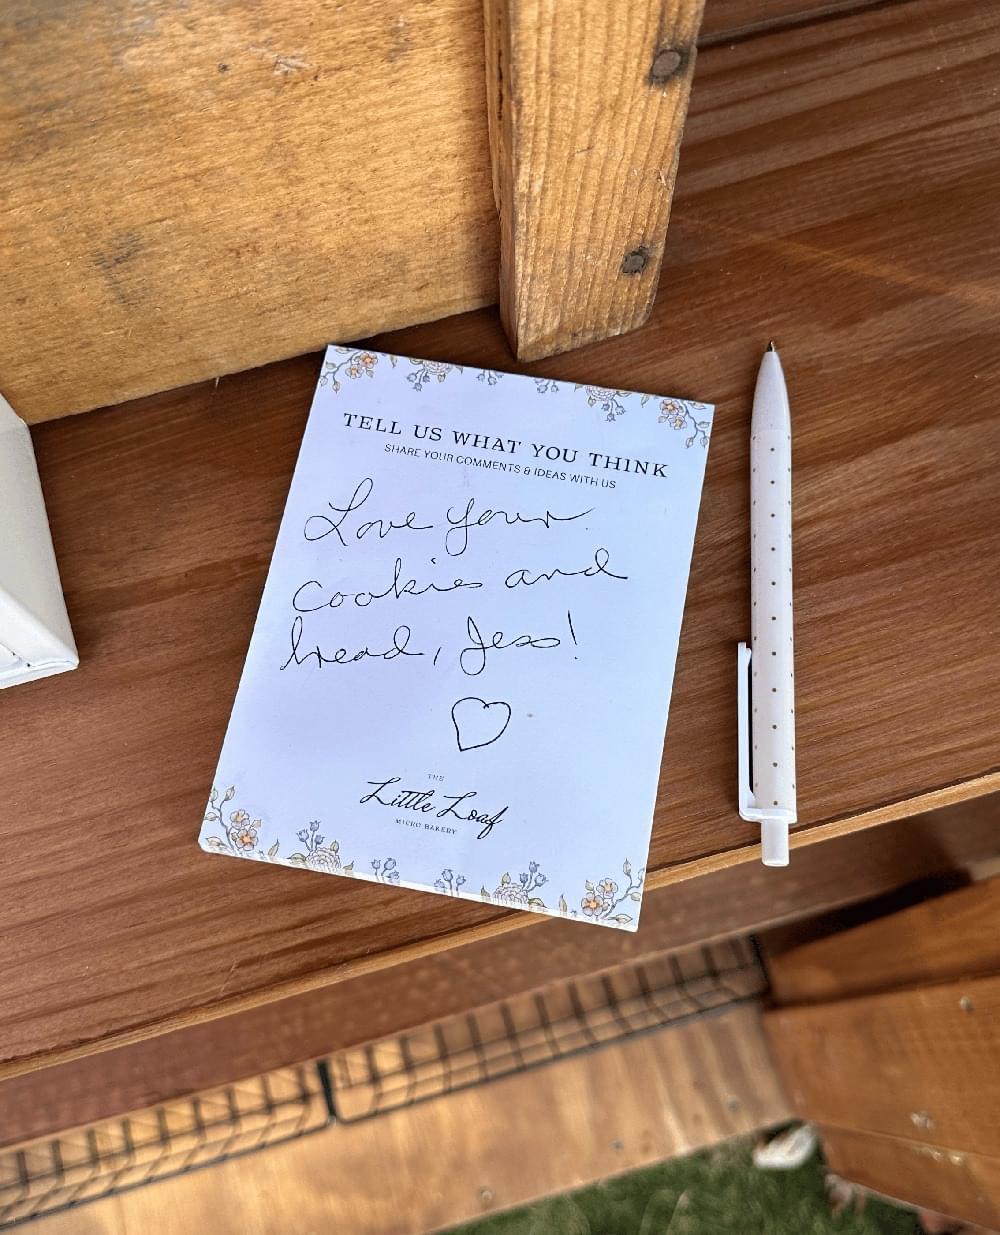 TELL US WHAT YOU THINK
SHARE YOUR COMMENTS & IDEAS WITH US
Love your
cookies and
bread, Jess!
THE
Little Loaf
MICRO BAKERY